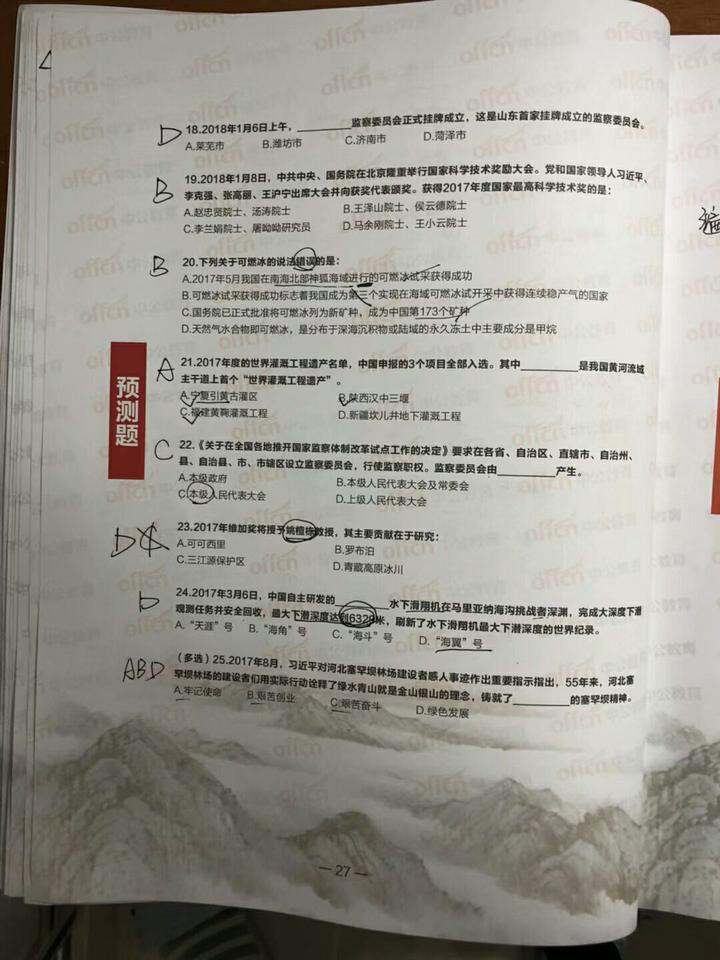 D 18.2018年1月6日上午，________监察委员会正式挂牌成立，这是山东首家挂牌成立的监察委员会。
A.莱芜市 B.潍坊市 C.济南市 D.菏泽市
B 19.2018年1月8日，中共中央、国务院在北京隆重举行国家科学技术奖励大会。党和国家领导人习近平、
李克强、张高丽、王沪宁出席大会并向获奖代表颁奖。获得2017年度国家最高科学技术奖的是：
A.赵忠贤院士、汤涛院士 B.王泽山院士、侯云德院士
C.李兰娟院士、屠呦呦研究员 D.马余刚院士、王小云院士
B 20.下列关于可燃冰的说法错误的是：
A.2017年5月我国在南海北部神狐海域进行的可燃冰试采获得成功
B.可燃冰试采获得成功标志着我国成为第三个实现在海域可燃冰试开采中获得连续稳产气的国家
C.国务院已正式批准将可燃冰列为新矿种，成为中国第173个矿种
D.天然气水合物即可燃冰，是分布于深海沉积物或陆域的永久冻土中主要成分是甲烷
预测题
A 21.2017年度的世界灌溉工程遗产名单，中国申报的3个项目全部入选。其中________是我国黄河流域
主干道上首个“世界灌溉工程遗产”。
A.宁夏引黄古灌区 B.陕西汉中三堰
C.福建黄鞠灌溉工程 D.新疆坎儿井地下灌溉工程
C 22.《关于在全国各地推开国家监察体制改革试点工作的决定》要求在各省、自治区、直辖市、自治州、
县、自治县、市、市辖区设立监察委员会，行使监察职权。监察委员会由________产生。
A.本级政府 B.本级人民代表大会及常委会
C.本级人民代表大会 D.上级人民代表大会
D 23.2017年维加奖将授予姚檀栋教授，其主要贡献在于研究：
A.可可西里 B.罗布泊
C.三江源保护区 D.青藏高原冰川
D 24.2017年3月6日，中国自主研发的________水下滑翔机在马里亚纳海沟挑战者深渊，完成大深度下潜
观测任务并安全回收，最大下潜深度达到6329米，刷新了水下滑翔机最大下潜深度的世界纪录。
A.“天涯”号 B.“海角”号 C.“海斗”号 D.“海翼”号
ABD （多选）25.2017年8月，习近平对河北塞罕坝林场建设者感人事迹作出重要指示指出，55年来，河北塞
罕坝林场的建设者们用实际行动诠释了绿水青山就是金山银山的理念，铸就了________的塞罕坝精神。
A.牢记使命 B.艰苦创业 C.艰苦奋斗 D.绿色发展
—27—